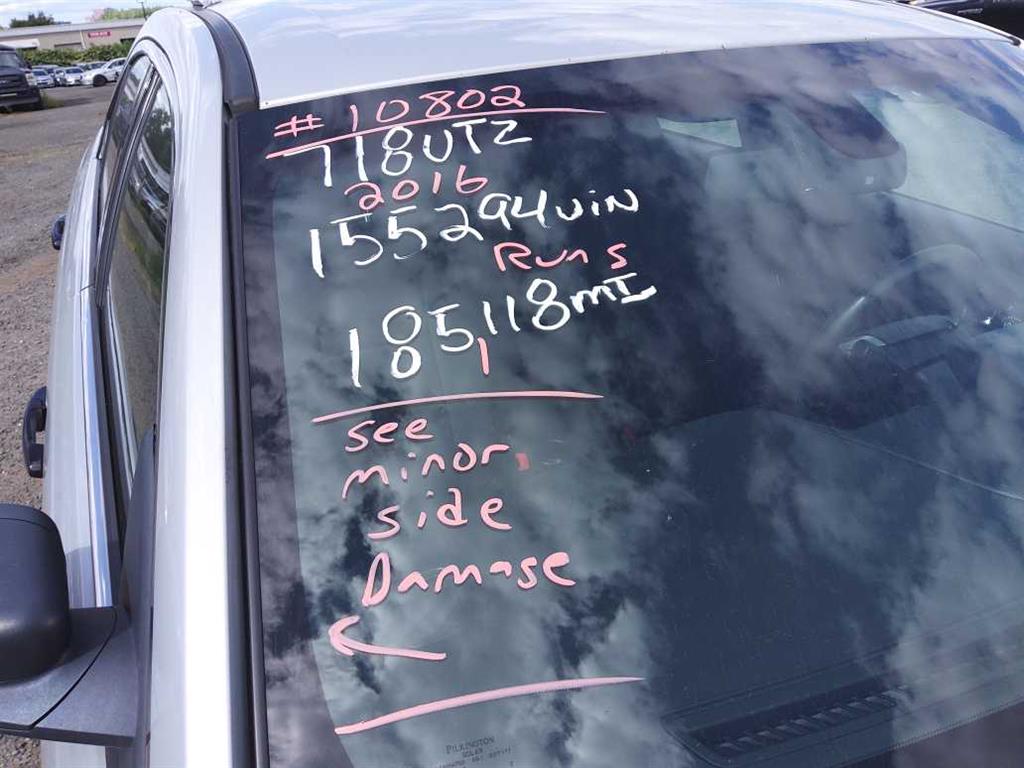 # 10802
718UTZ
2016
155294 vin
Runs
185118 mI
1
see
minor
side
Damage
PILKINGTON